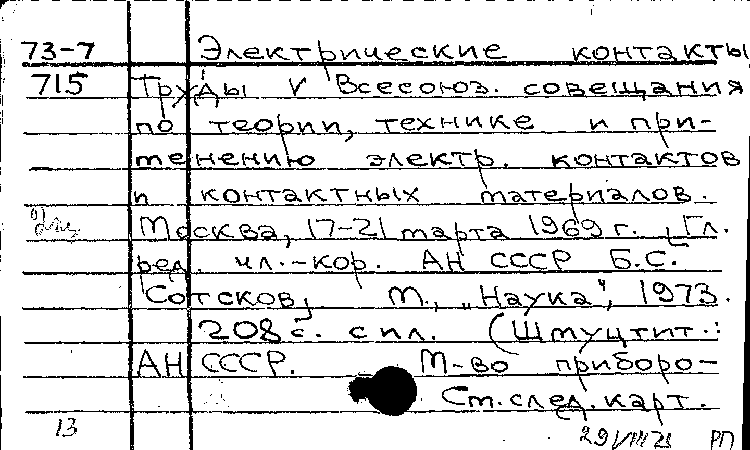 73-7 Электрические контакты
715 Труды V Всесоюз. совещания
по теории, технике и при-
менению электр. контактов
и контактных материалов.
Москва, 17-21 марта 1969 г. [Гл.
ред. чл.-кор. АН СССР Б.С.
Сотсков]. М., „Наука", 1973.
208 с. с ил. (Шмуцтит.:
АН СССР. М-во приборо-
См. след. карт.
13 29 VIII 73 РП